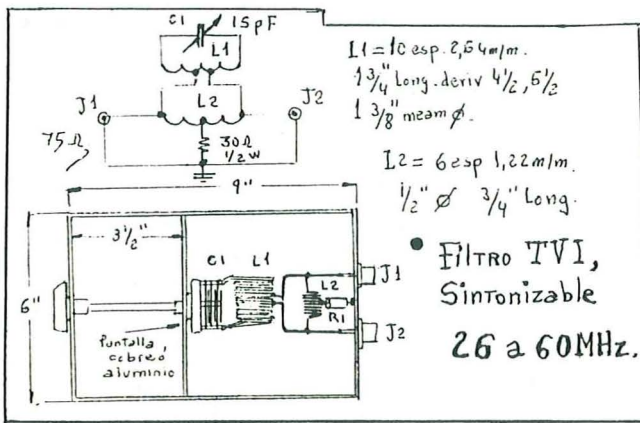 C1 15pF
L1
L2
J1
J2
75Ω
30Ω
1/2 W
L1 = 10 esp. 2,64m/m.
1 3/4" Long. deriv 4 1/2, 5 1/2
1 3/8" mzam ø.
L2 = 6 esp 1,22m/m.
1/2" ø 3/4" Long.
9"
3 1/2"
6"
C1 L1
L2
R1
J1
J2
Pantalla,
cobre o
aluminio
• FilTRO TVI,
SinTonizable
26 a 60MHz.